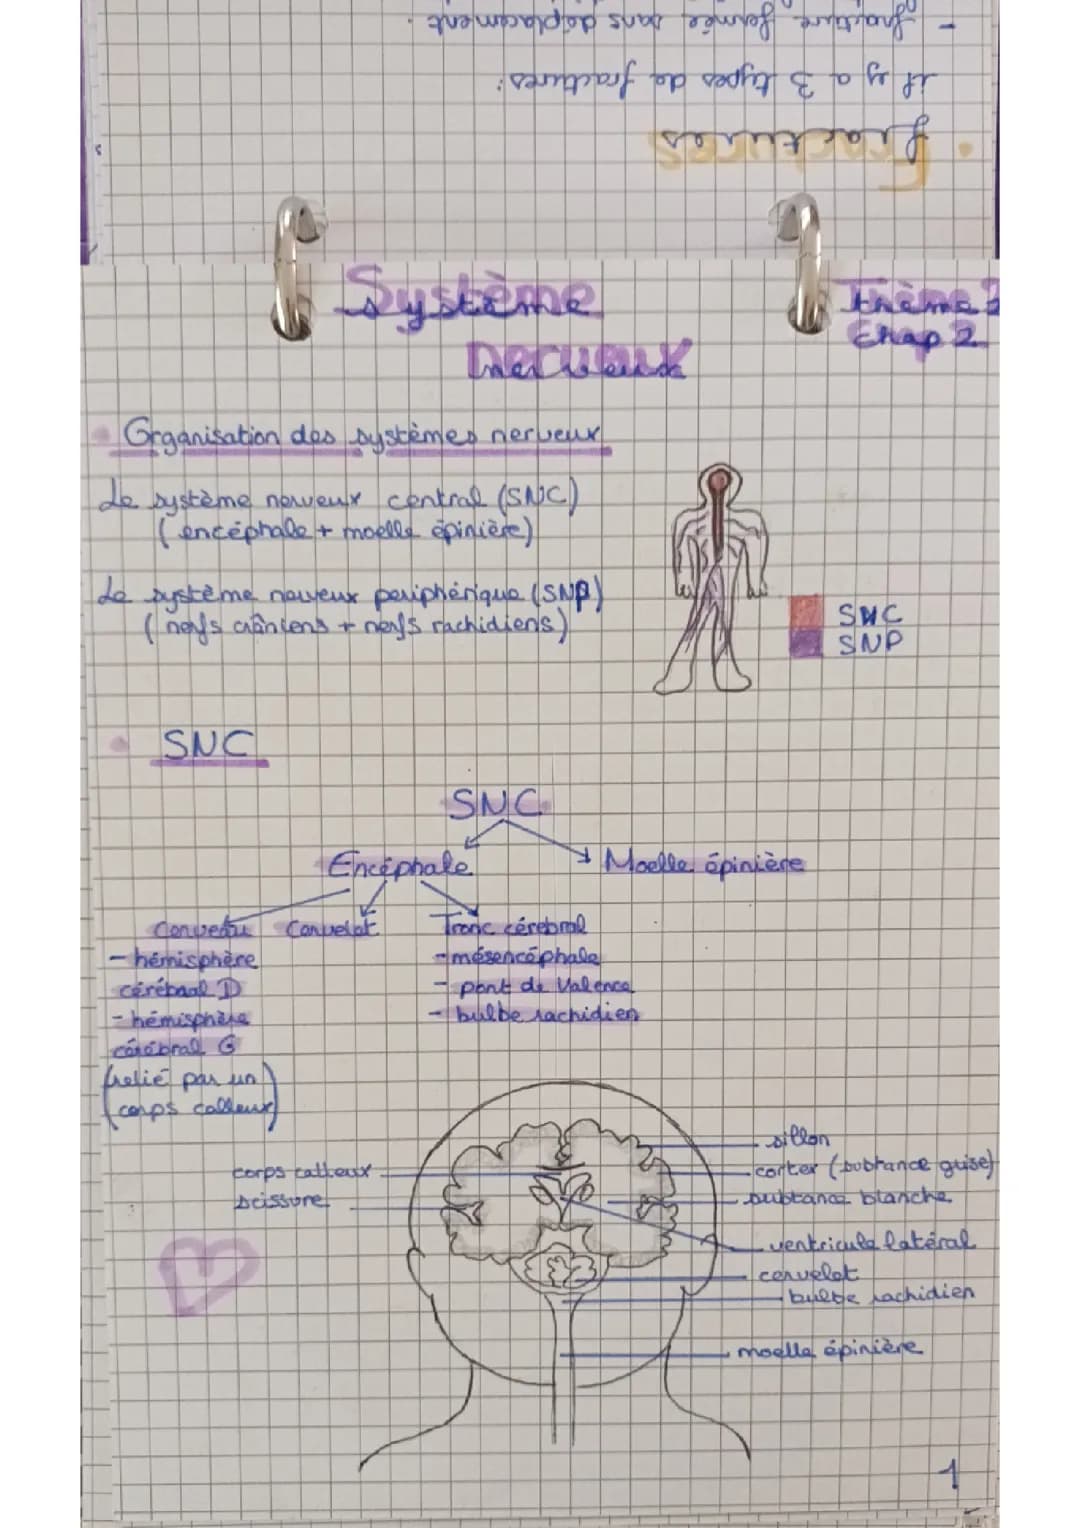 - fracture fermée sans déplacement.
il y a 3 types de fractures:
• Fractures
Système
nerveux
Thème 2
Chap 2
• Organisation des systèmes nerveux
Le système nerveux central (SNC)
(encéphale + moelle épinière)
Le système nerveux periphérique (SNP)
(nerfs crâniens + nerfs rachidiens)
SNC
SNP
• SNC
SNC
Encéphale
Moelle épinière
Cerveau
Cervelet
Tronc cérébral
- hémisphère
cérébral D
- hémisphère
cérébral G
(relié par un
corps calleux)
- mésencéphale
- pont de Valence
- bulbe rachidien
corps calleux
scissure
sillon
cortex (subtance grise)
subtance blanche
ventricule latéral
cervelet
bulbe rachidien
moelle épinière
1